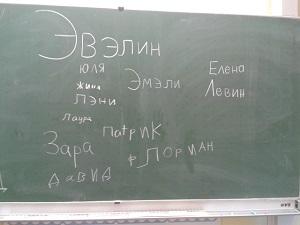 Эвэлин
юля
жина
Пэни
Лаура
Эмэли
Елена
Левин
Патрик
Зара
Флориан
Давид